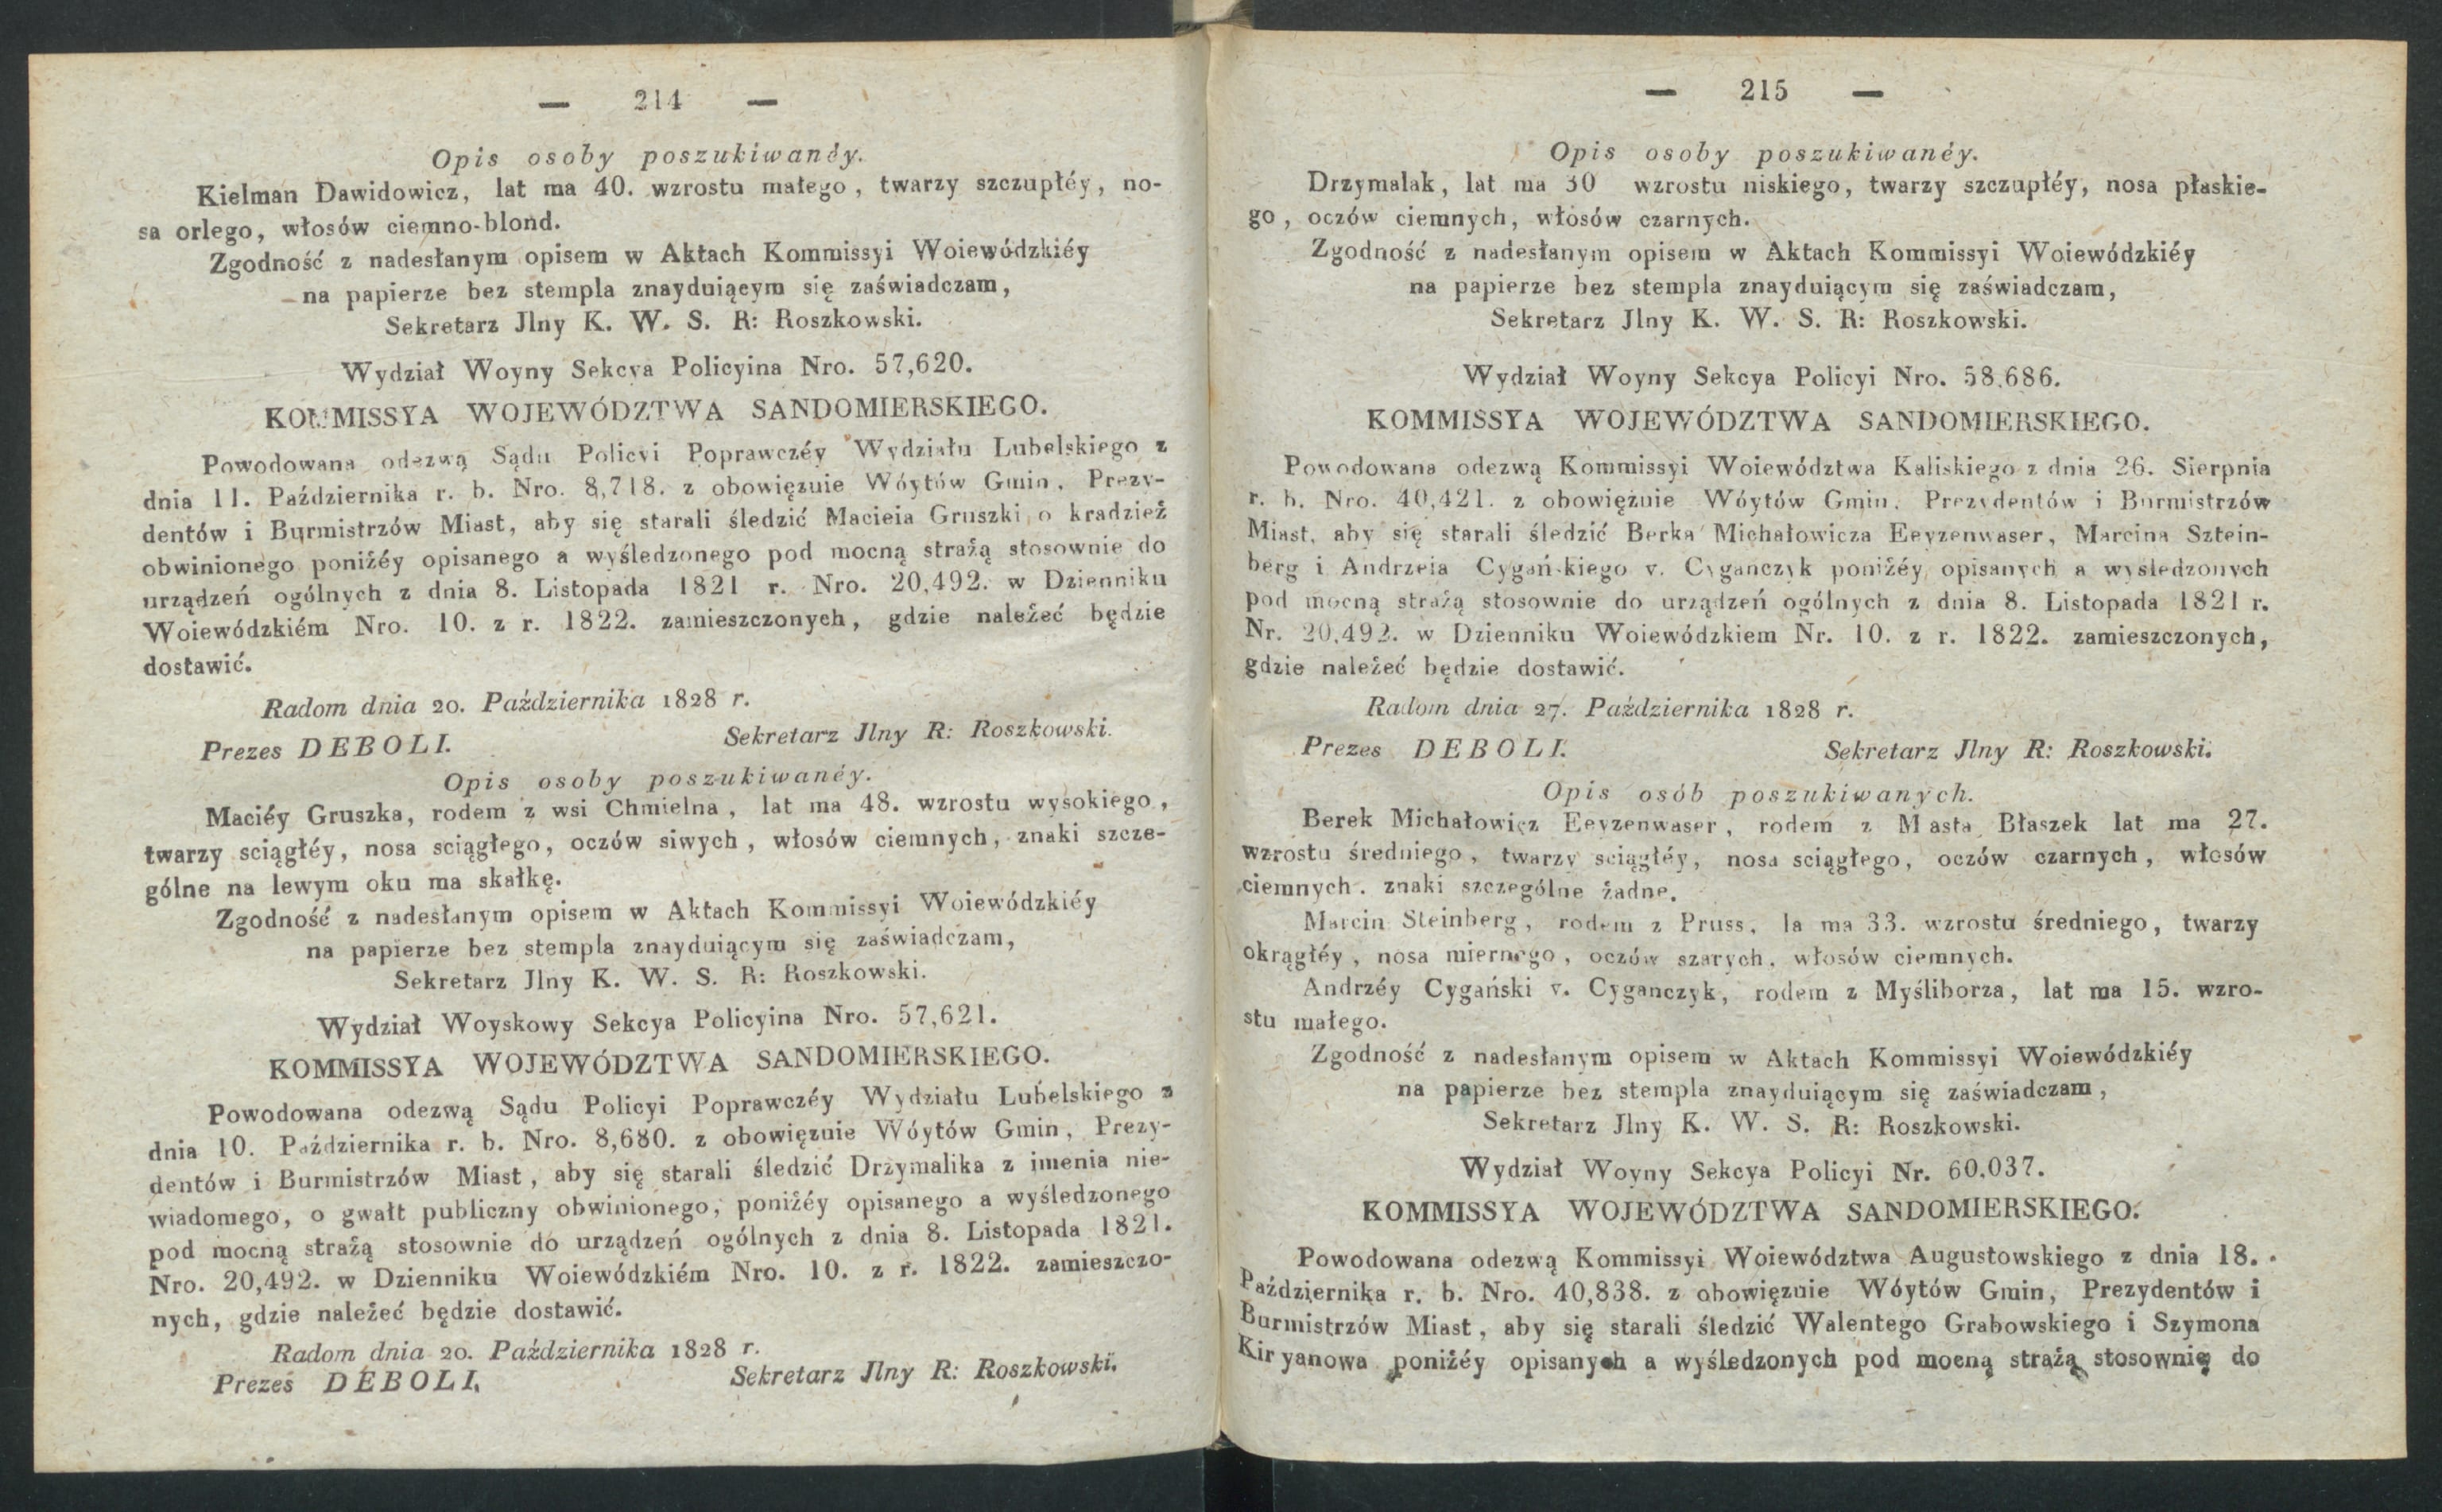 — 214 —
Opis osoby poszukiwanéy.
Kielman Dawidowicz, lat ma 40. wzrostu małego, twarzy szczupłéy, no-
sa orlego, włosów ciemno-blond.
Zgodność z nadesłanym opisem w Aktach Kommissyi Woiewódzkiéy
na papierze bez stempla znayduiącym się zaświadczam,
Sekretarz Jlny K. W. S. R: Roszkowski.
Wydział Woyny Sekcya Policyina Nro. 57,620.
KOMMISSYA WOJEWÓDZTWA SANDOMIERSKIEGO.
Powodowana odezwą Sądu Policyi Poprawczéy Wydziału Lubelskiego z
dnia 11. Października r. b. Nro. 8,718. z obowięzuie Wóytów Gmin, Prezy-
dentów i Burmistrzów Miast, aby się starali śledzić Macieia Gruszki o kradzież
obwinionego poniżéy opisanego a wyśledzonego pod mocną strażą stosownie do
urządzeń ogólnych z dnia 8. Listopada 1821 r. Nro. 20,492. w Dzienniku
Woiewódzkiém Nro. 10. z r. 1822. zamieszczonych, gdzie należeć będzie
dostawić.
Radom dnia 20. Października 1828 r.
Prezes DEBOLI. Sekretarz Jlny R: Roszkowski.
Opis osoby poszukiwanéy.
Maciéy Gruszka, rodem z wsi Chmielna, lat ma 48. wzrostu wysokiego,
twarzy sciągłéy, nosa sciągłego, oczów siwych, włosów ciemnych, znaki szcze-
gólne na lewym oku ma skałkę.
Zgodność z nadesłanym opisem w Aktach Kommissyi Woiewódzkiéy
na papierze bez stempla znayduiącym się zaświadczam,
Sekretarz Jlny K. W. S. R: Roszkowski.
Wydział Woyskowy Sekcya Policyina Nro. 57,621.
KOMMISSYA WOJEWÓDZTWA SANDOMIERSKIEGO.
Powodowana odezwą Sądu Policyi Poprawczéy Wydziału Lubelskiego z
dnia 10. Października r. b. Nro. 8,680. z obowięzuie Wóytów Gmin, Prezy-
dentów i Burmistrzów Miast, aby się starali śledzić Drzymalika z imenia nie-
wiadomego, o gwałt publiczny obwinionego, poniżéy opisanego a wyśledzonego
pod mocną strażą stosownie do urządzeń ogólnych z dnia 8. Listopada 1821.
Nro. 20,492. w Dzienniku Woiewódzkiém Nro. 10. z r. 1822. zamieszczo-
nych, gdzie należeć będzie dostawić.
Radom dnia 20. Października 1828 r.
Prezes DEBOLI, Sekretarz Jlny R: Roszkowski.
— 215 —
Opis osoby poszukiwanéy.
Drzymalak, lat ma 30 wzrostu niskiego, twarzy szczupłéy, nosa płaskie-
go, oczów ciemnych, włosów czarnych.
Zgodność z nadesłanym opisem w Aktach Kommissyi Woiewódzkiéy
na papierze bez stempla znayduiącym się zaświadczam,
Sekretarz Jlny K. W. S. R: Roszkowski.
Wydział Woyny Sekcya Policyi Nro. 58,686.
KOMMISSYA WOJEWÓDZTWA SANDOMIERSKIEGO.
Powodowana odezwą Kommissyi Woiewództwa Kaliskiego z dnia 26. Sierpnia
r. b. Nro. 40,421. z obowięzuie Wóytów Gmin, Prezydentów i Burmistrzów
Miast, aby się starali śledzić Berka Michałowicza Eeyzenwaser, Marcina Sztein-
berg i Andrzeia Cygańskiego v. Cyganczyk poniżéy opisanych a wysledzonych
pod mocną strażą stosownie do urządzeń ogólnych z dnia 8. Listopada 1821 r.
Nr. 20,492. w Dzienniku Woiewódzkiem Nr. 10. z r. 1822. zamieszczonych,
gdzie należeć będzie dostawić.
Radom dnia 27. Października 1828 r.
Prezes DEBOLI. Sekretarz Jlny R: Roszkowski.
Opis osób poszukiwanych.
Berek Michałowicz Eeyzenwaser, rodem z M asta Błaszek lat ma 27.
wzrostu średniego, twarzy sciągłéy, nosa sciągłego, oczów czarnych, włosów
ciemnych. znaki szczególne żadne.
Marcin Steinberg, rodem z Pruss, la ma 33. wzrostu średniego, twarzy
okrągłéy, nosa miernego, oczów szarych, włosów ciemnych.
Andrzéy Cygański v. Cyganczyk, rodem z Myśliborza, lat ma 15. wzro-
stu małego.
Zgodność z nadesłanym opisem w Aktach Kommissyi Woiewódzkiéy
na papierze bez stempla znayduiącym się zaświadczam,
Sekretarz Jlny K. W. S. R: Roszkowski.
Wydział Woyny Sekcya Policyi Nr. 60,037.
KOMMISSYA WOJEWÓDZTWA SANDOMIERSKIEGO.
Powodowana odezwą Kommissyi Woiewództwa Augustowskiego z dnia 18.
Października r. b. Nro. 40,838. z obowięzuie Wóytów Gmin, Prezydentów i
Burmistrzów Miast, aby się starali śledzić Walentego Grabowskiego i Szymona
Kiryanowa poniżéy opisanych a wyśledzonych pod mocną strażą stosownie do